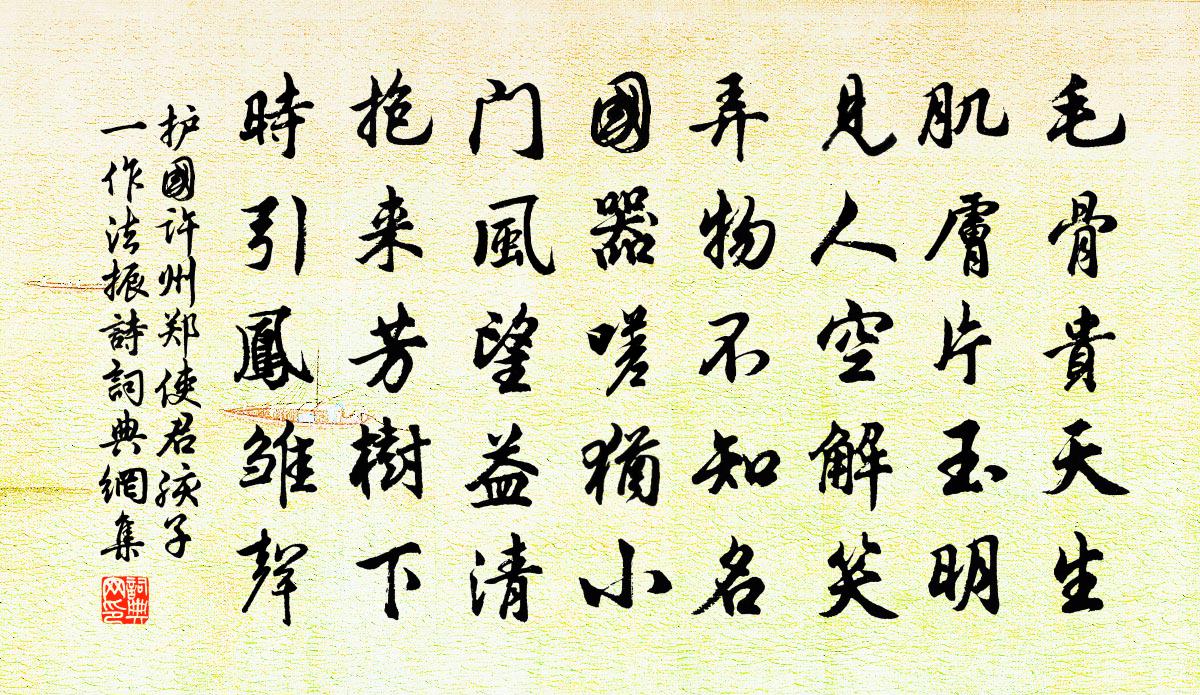 毛骨貴天生
肌膚片玉明
見人空解笑
弄物不知名
國器嗟猶小
门風望益清
抱来芳樹下
時引鳳雛聲
护國許州郑使君孩子
一作法振詩詞典網集
詞典
网印